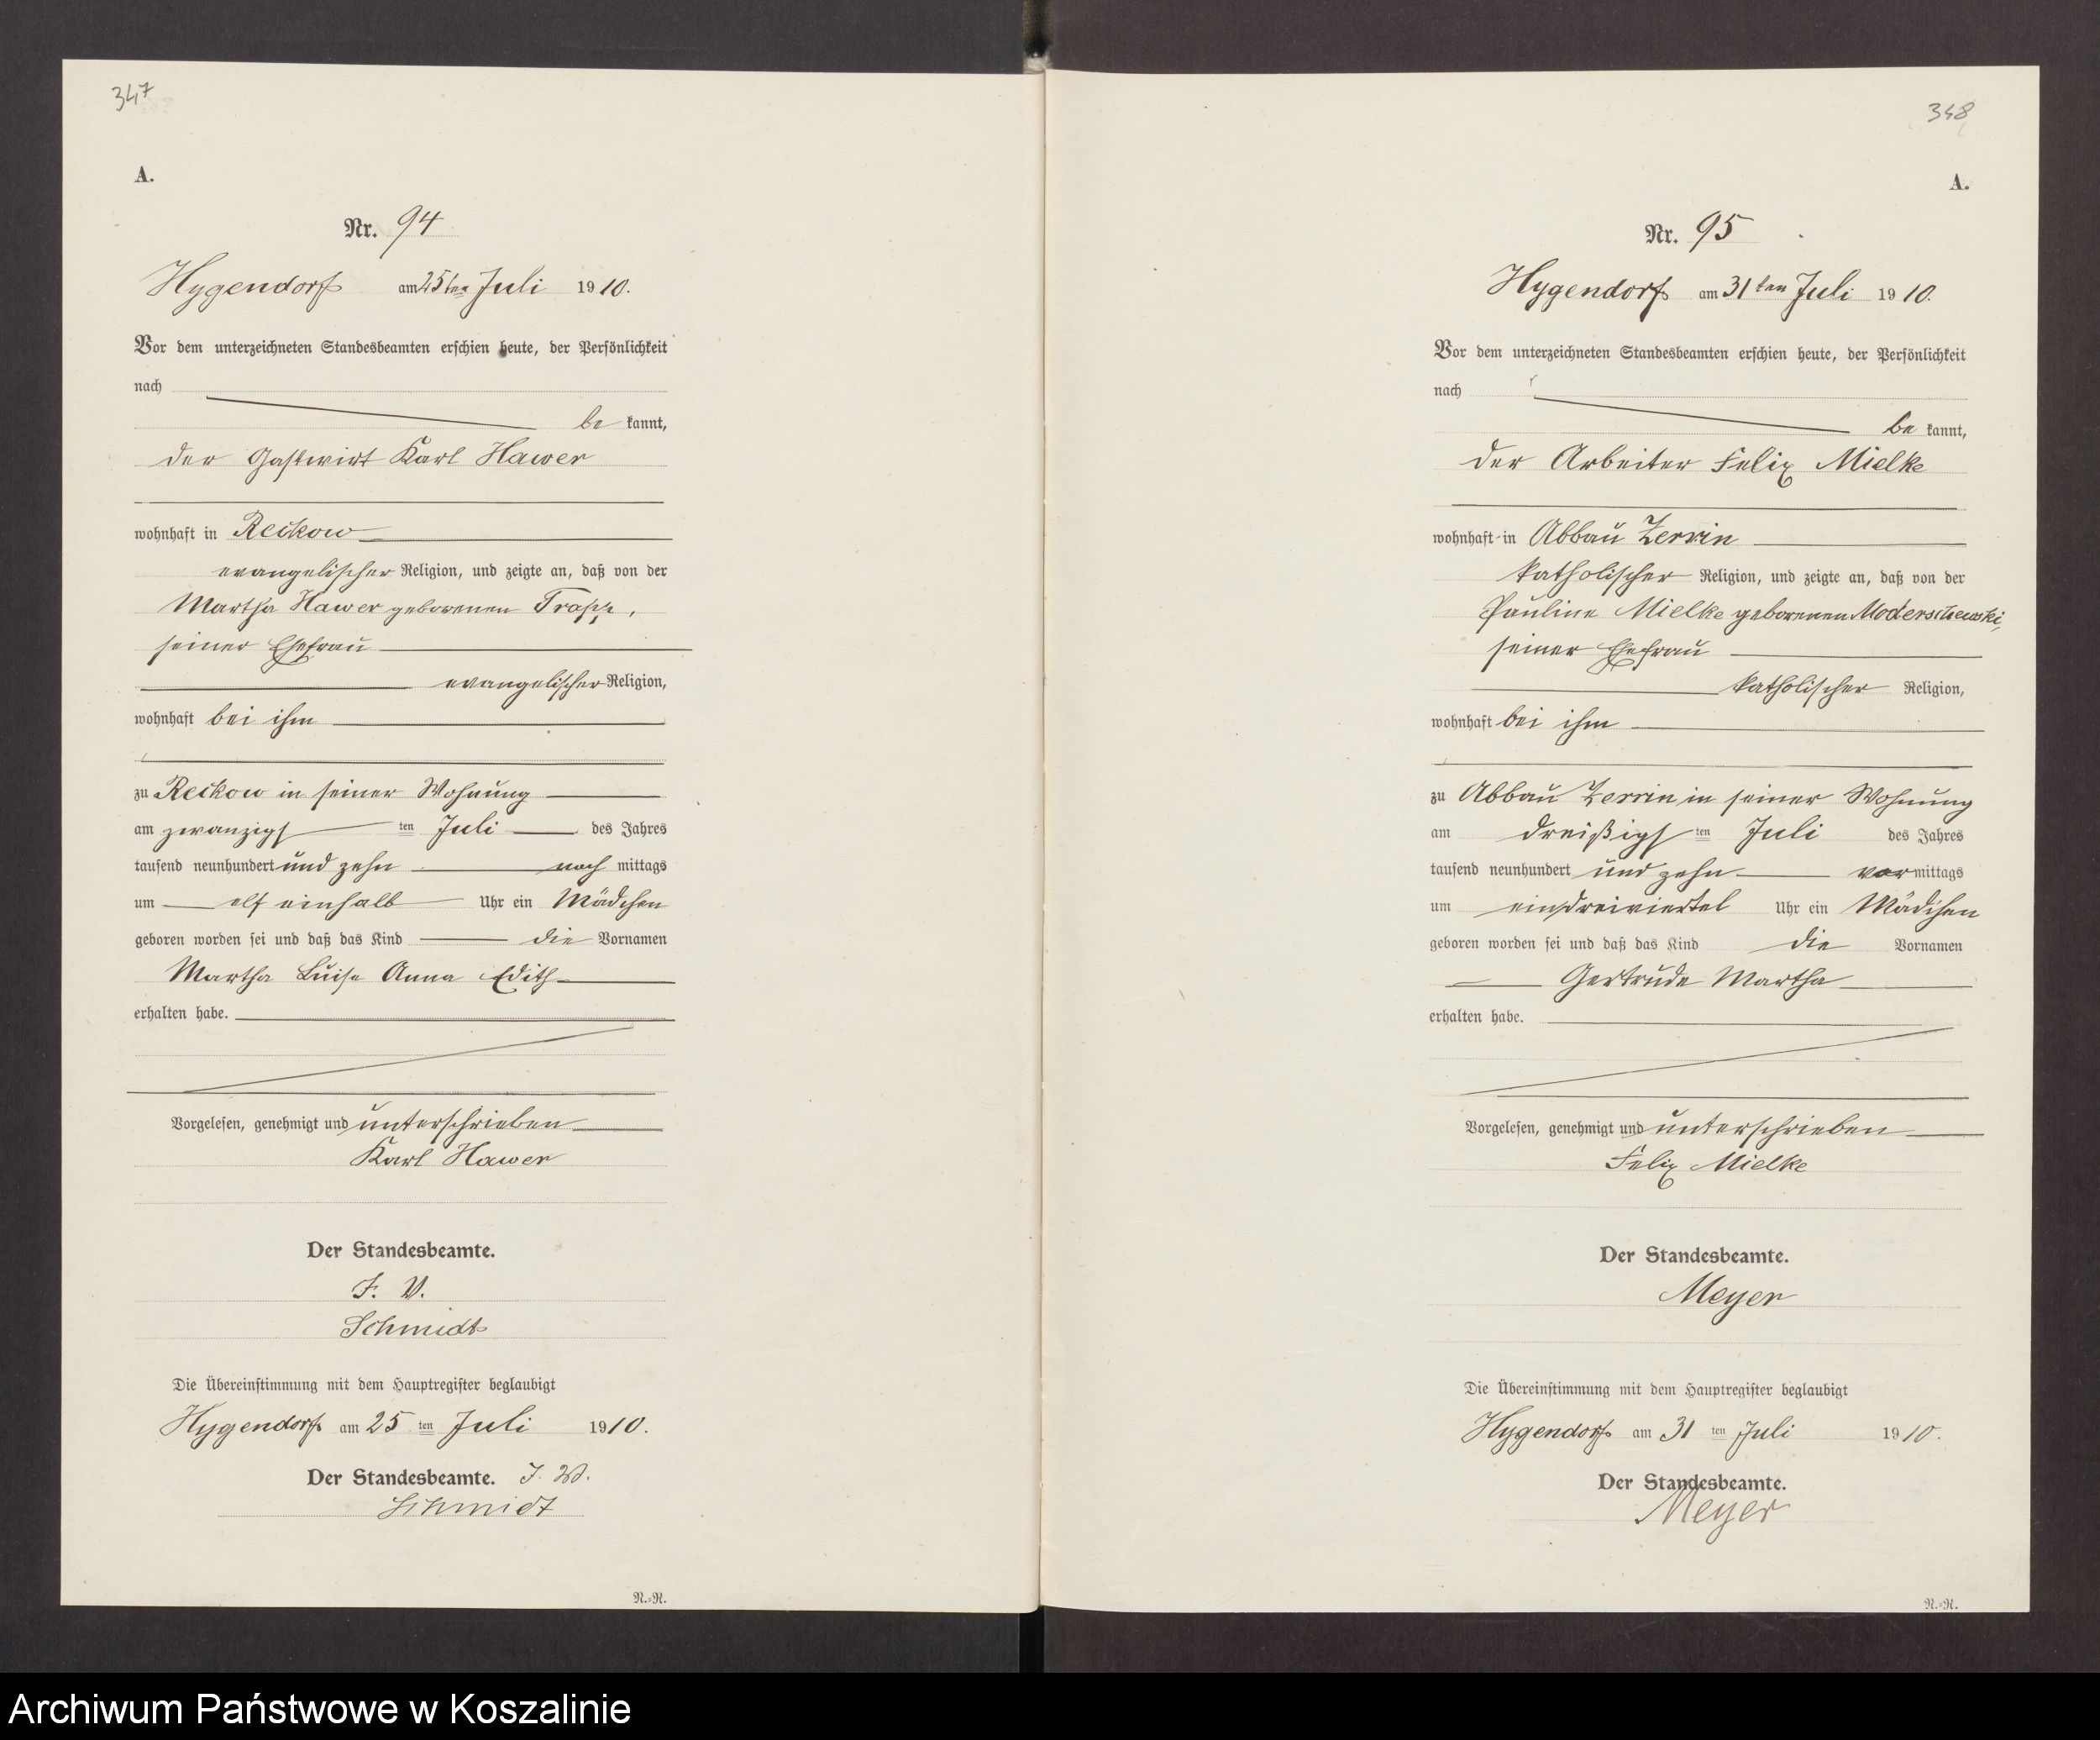 347
A.
Nr. 94
Hygendorf am 25ten Juli 1910.
Vor dem unterzeichneten Standesbeamten erschien heute, der Persönlichkeit
nach
be kannt,
der Gastwirt Karl Hawer
wohnhaft in Reckow
evangelischer Religion, und zeigte an, daß von der
Martha Hawer geborenen Trapp,
seiner Ehefrau
evangelischer Religion,
wohnhaft bei ihm
zu Reckow in seiner Wohnung
am zwanzigsten Juli des Jahres
tausend neunhundert und zehn nach mittags
um elf einhalb Uhr ein Mädchen
geboren worden sei und daß das Kind die Vornamen
Martha Luise Anna Edith
erhalten habe.
Vorgelesen, genehmigt und unterschrieben
Karl Hawer
Der Standesbeamte.
J. V.
Schmidt
Die Übereinstimmung mit dem Hauptregister beglaubigt
Hygendorf am 25 ten Juli 1910.
Der Standesbeamte. J. V.
Schmidt
R.-R.
348
A.
Nr. 95
Hygendorf am 31ten Juli 1910.
Vor dem unterzeichneten Standesbeamten erschien heute, der Persönlichkeit
nach
be kannt,
der Arbeiter Felix Mielke
wohnhaft in Abbau Zerrin
katholischer Religion, und zeigte an, daß von der
Pauline Mielke geborenen
seiner Ehefrau
katholischer Religion,
wohnhaft bei ihm
zu Abbau Zerrin in seiner Wohnung
am dreißigsten Juli des Jahres
tausend neunhundert und zehn vormittags
um eindreiviertel Uhr ein Mädchen
geboren worden sei und daß das Kind die Vornamen
Gertrude Martha
erhalten habe.
Vorgelesen, genehmigt und unterschrieben
Felix Mielke
Der Standesbeamte.
Meyer
Die Übereinstimmung mit dem Hauptregister beglaubigt
Hygendorf am 31 ten Juli 1910.
Der Standesbeamte.
Meyer
R.-R.
Archiwum Państwowe w Koszalinie